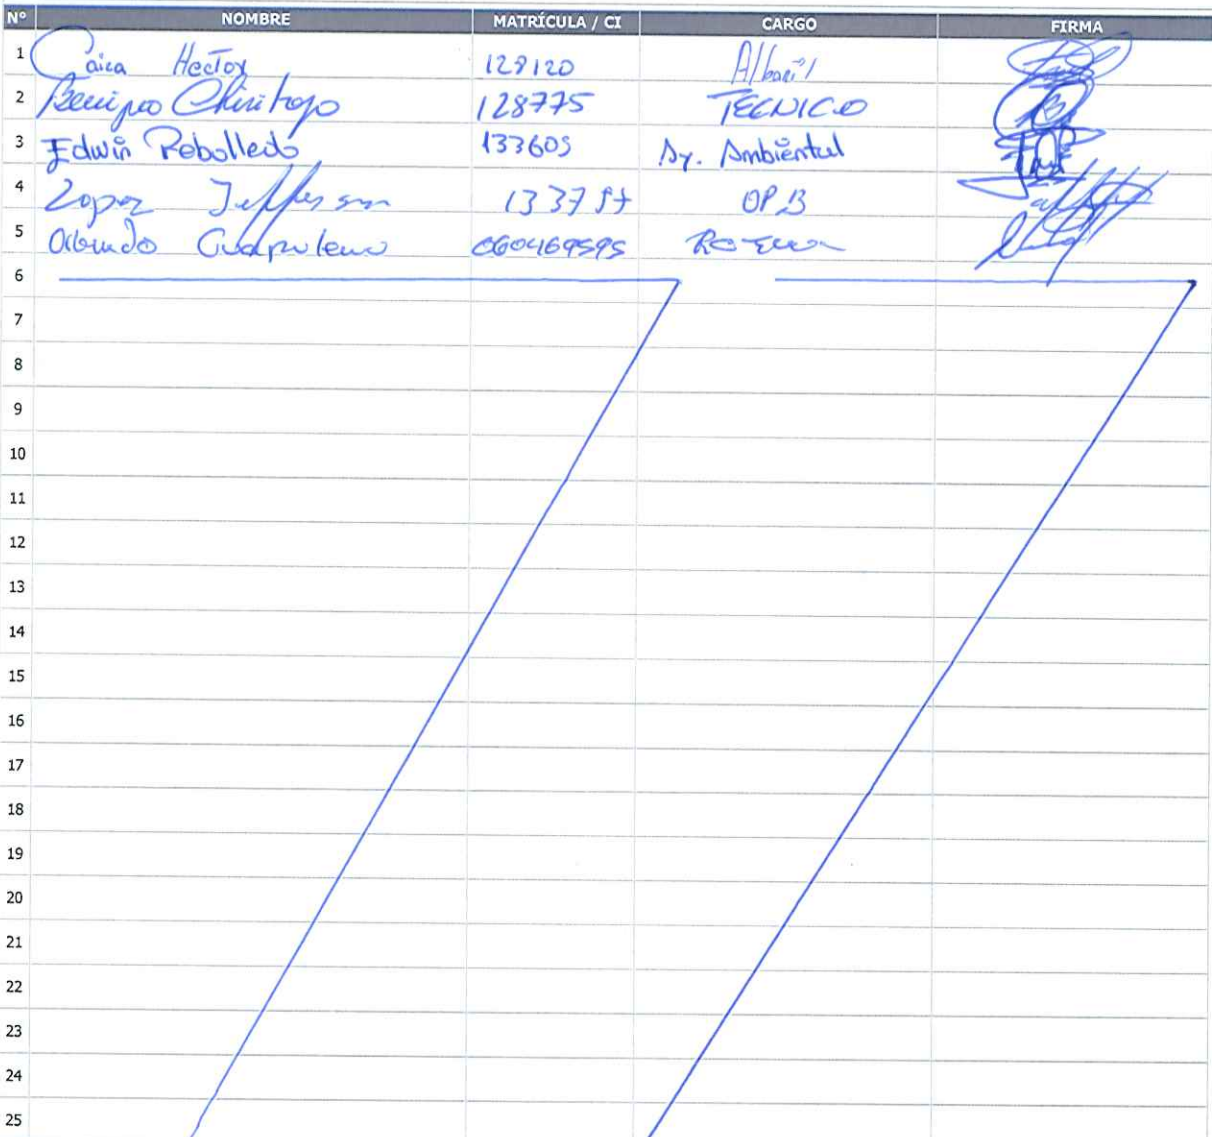 Nº NOMBRE MATRÍCULA / CI CARGO FIRMA
1 Caiza Hector 128120 Albañil
2 128775 TECNICO
3 Edwin Rebolledo 133605 Ay. Ambiental
4 Lopez Jefferson 133757 OP B
5 0604169595
6
7
8
9
10
11
12
13
14
15
16
17
18
19
20
21
22
23
24
25